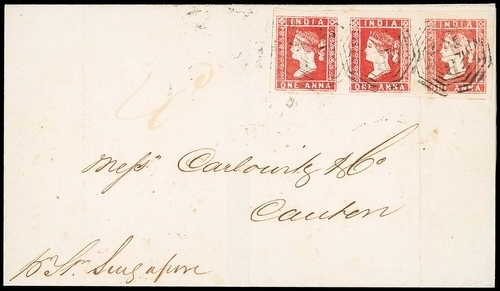 INDIA INDIA INDIA
ONE ANNA ONE ANNA ANNA
Messrs Carlowitz & Co
Canton
pr Str Singapore